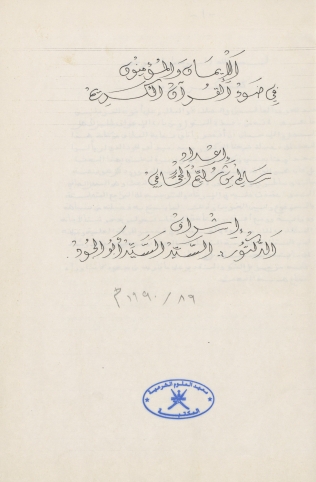 الإيمان والمؤمنون
في ضوء القرآن الكريم
إعداد
سالم بن
إشراف
الدكتور السيد السيد أبو الجود
٨٩ / ١٩٩٠ م
معهد العلوم الشرعية
المكتبة